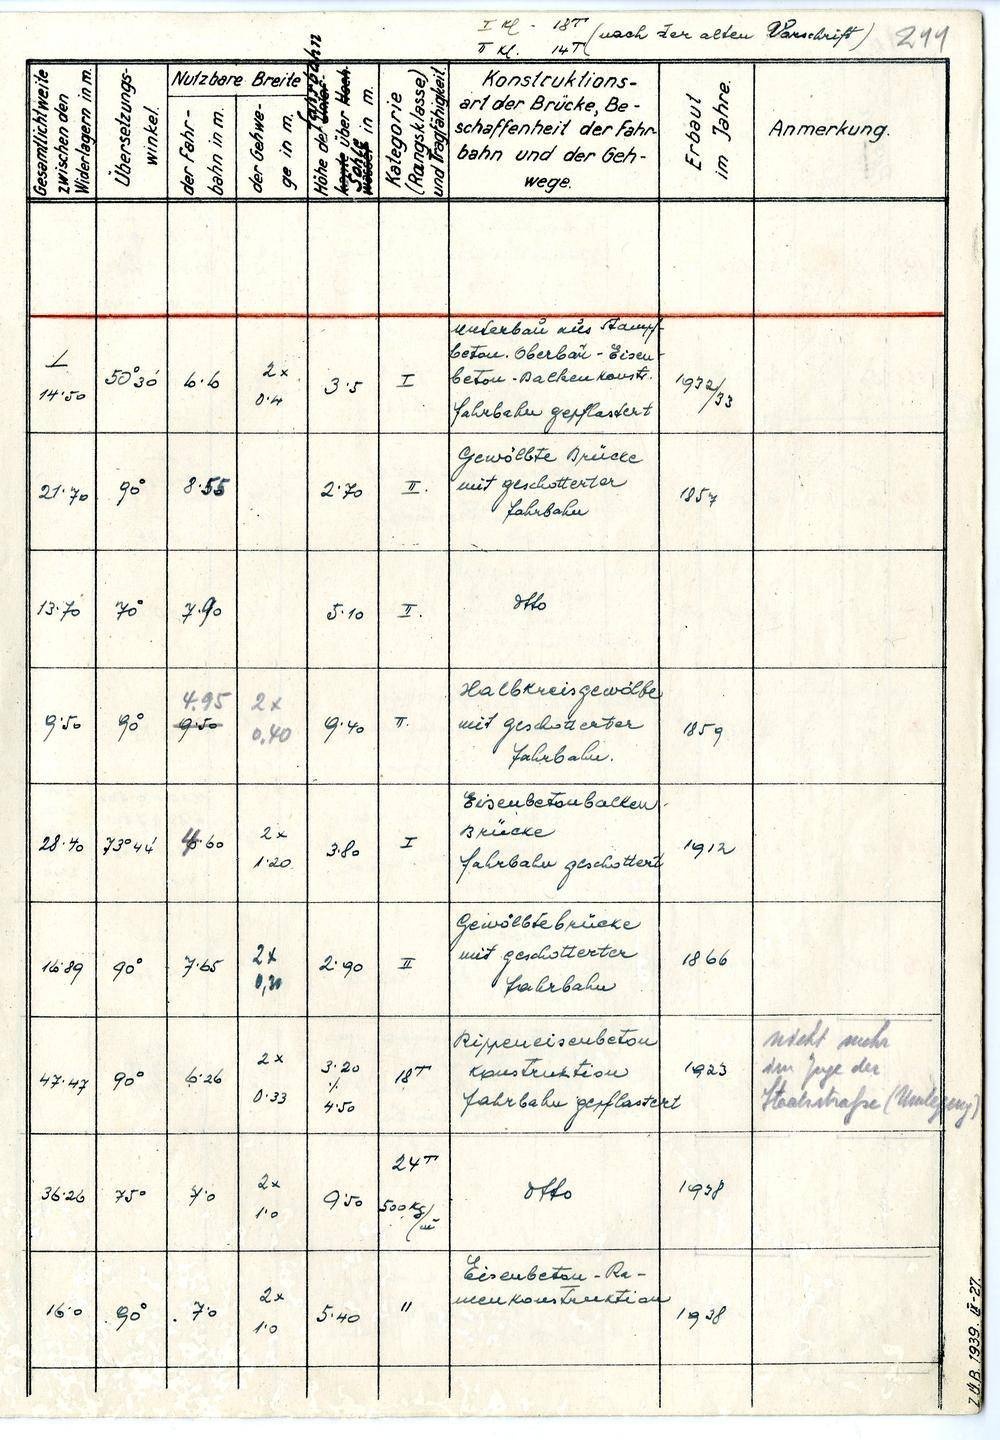 I Kl. - 18T
II Kl. 14T (nach der alten Vorschrift)
211
Gesamtlichtweite zwischen den Widerlagern in m.
Übersetzungs-winkel.
Nutzbare Breite
der Fahr-bahn in m.
der Gehwe-ge in m.
Höhe der Fahrbahn über Sohle in m.
Kategorie (Rangsklasse) und Tragfähigkeit.
Konstruktions-
art der Brücke, Be-
schaffenheit der Fahr-
bahn und der Geh-
wege.
Erbaut im Jahre.
Anmerkung.
⊥ 14·50
50°30'
6·6
2x 0·4
3·5
I
Unterbau aus Stampf-
beton. Oberbau - Eisen-
beton-Balkenkonstr.
Fahrbahn gepflastert
1932/33
21·70
90°
8·55
2·70
II.
Gewölbte Brücke
mit geschotterter
Fahrbahn
1857
13·70
70°
7·90
5·10
II.
dtto
9·50
90°
4.95
9·50
2x 0,40
9·40
II.
Halbkreisgewölbe
mit geschotterter
Fahrbahn.
1859
28·40
73°44'
4·60
2x 1·20
3·80
I
Eisenbetonbalken-
Brücke
Fahrbahn geschottert
1912
16·89
90°
7·65
2x 0,30
2·90
II
Gewölbtebrücke
mit geschotterter
Fahrbahn
1866
47·47
90°
6·26
2x 0·33
3·20 ·/. 4·50
18T
Rippeneisenbeton
Konstruktion
Fahrbahn gepflastert
1923
nicht mehr
im Zuge der
Staatsstraße (Umlegung)
36·26
75°
7·0
2x 1·0
9·50
24T
500kg/m²
dtto
1938
16·0
90°
7·0
2x 1·0
5·40
"
Eisenbeton-Ra-
menkonstruktion
1938
Z.Ü.B. 1939. II-27.